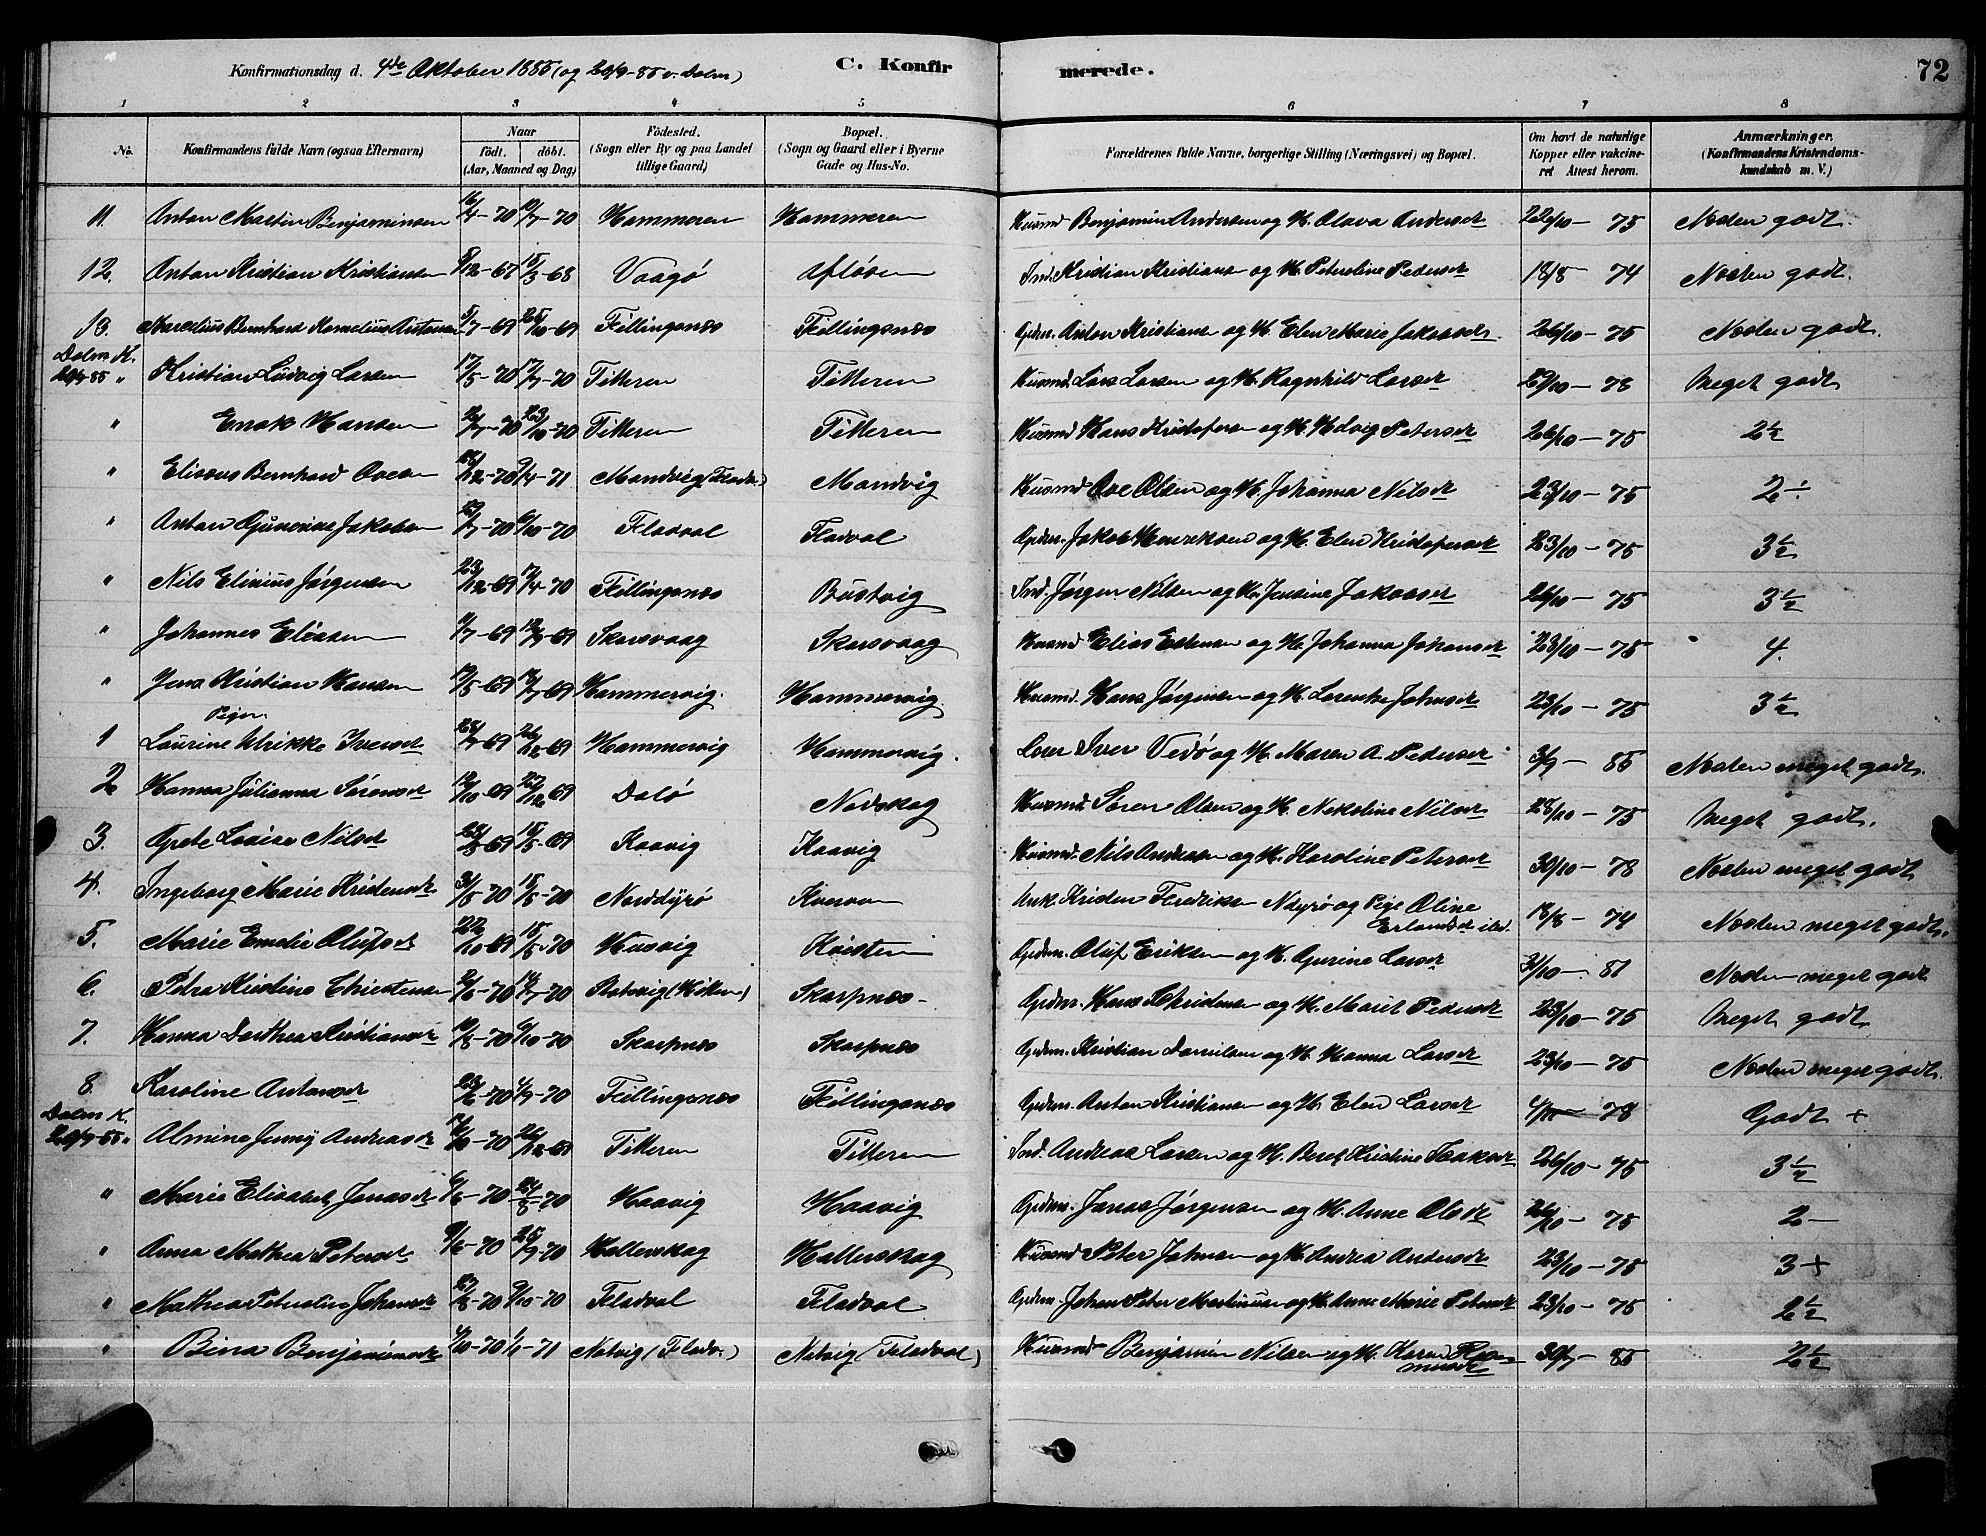 Konfirmationsdag d. 4de Oktober 1885 (og 20/9-85 v. Dolm)
C. Konfirmerede.
72
1 2 3 4 5 6 7 8
No.
Konfirmandens fulde Navn (ogsaa Efternavn)
Naar født. døbt. (Aar, Maaned og Dag)
Fødested. (Sogn eller By og paa Landet tillige Gaard)
Bopæl. (Sogn og Gaard eller i Byerne Gade og Hus-No.
Forældrenes fulde Navne, borgerlige Stilling (Næringsvei) og Bopæl.
Om havt de naturlige Kopper eller vakcineret Attest herom.
Anmærkninger. (Konfirmandens Kristendomskundskab m. V.)
11. Anton Martin Benjaminsen 16/4-70 10/7-70 Hammeren Hammeren Husmd Benjamin Andersen og H. Olava Andersdt 22/10 - 75 Næsten godt.
12. Anton Kristian Kristiansen 5/12-67 15/3-68 Vaagø Ind. Kristian Kristiansen og H. Peteroline Pedersdt 18/8 - 74 Næsten godt.
13. Marcelius Bernhard Kornelius Antonsen 5/7-69 25/10-69 Fillingsnæs Fillingsnæs Gdm. Anton Kristiansen og H. Elen Marie Jakobsdt. 26/10 - 75 Næsten godt.
Dolm K. 20/9-85 " Kristian Ludvig Larsen 17/5-70 17/7-70 Titteren Titteren Husmd. Lars Larsen og H. Ragnhild Larsdt 29/10 - 78 Meget godt
" Enok Hansen 23/10-70 Titteren Titteren Husmd Hans Kristofersen og H. Hedvig Petersdt 26/10 - 75 2½
" Eliseus Bernhard Ovesen 28/12-70 9/4-71 Mandvig (Fladv.) Mandvig Husmd Ove Olsen og H. Johanna Nilsdt 23/10 - 75 2÷
" Anton Jakobsen 9/10-70 Fladval Fladval Gdm. Jakob og H. Elen Kristofersdt 23/10 - 75 3½
" Nils Elinius Jørgensen 23/12-69 17/4-70 Fillingsnæs Bustvig Ind. Jørgen Nilsen og H. Jensine Jakobsdt 26/10 - 75 3½
" Johannes Eliasen 9/7-69 12/9-69 Skarsvaag Skarsvaag Husmd Elias Estensen og H. Johanna Johansdt 23/10 - 75 4.
" Jens Kristian Hansen 19/5-69 Hammervig. Hammervig Husmd. Hans Jørgensen og H. Lorentse Johnsdt 23/10 - 75 3½
Piger
1 Laurine Ulrikke Iversdt 28/7-69 26/12-69 Hammervig Hammervig. Iver Vedø og H. Maren A. Pedersdt 3/9 - 85 Næsten meget godt.
2 Hanna Julianna Sørensdt 19/10-69 27/12-69 Dolø Nodskag Husmd. Søren Olsen og H. Nekoline Nilsdt 23/10 - 75 Meget godt.
3. Grete Lovise Nilsdt 15/5-69 Kaavig Kaavig Husmd. Nils Andersen og H. Karoline Petersdt 30/10 - 78 Næsten meget godt
4. Ingeborg Marie Kristensdt 31/5-70 Norddyrø Kristen Fredriksen Ndyrø og Pige Oline Erlandsdt 18/8 - 74 Næsten meget godt.
5. Marie Emelie Olufsdt 22/10-69 15/5-70 Husvig Gdm. Oluf Eriksen og H. Gurine Larsdt 31/10 - 81 Næsten meget godt
6. Petra Kristine Christensen Skarpnæs Gdm. Hans Christensen og H. Marit Pedersdt 23/10 - 75 Meget godt
7. Hanna Dorthea Kristiansdt 9/10-70 Skarpnæs Skarpnæs Gdm. Kristian Danielsen og H. Hanna Larsdt 23/10 - 75 Næsten meget godt.
8. Karoline Antonsdt 23/6-70 4/9-70 Fillingsnæs Fillingsnæs Gdm. Anton Kristiansen og H. Elen Larsdt 78 Godt +
Dolm K. 20/9-85 " Almine Jenny Andreasdt 26/12-69 Titteren Titteren Ind. Andreas Larsen og H. Beret Kristine Isaksdt 26/10 - 75 3½
" Marie Elisabet Jonasdt 6/6-70 24/8-70 Haavig Haavig Gdm. Jonas Jørgensen og H. Anne Olsdt 26/10 - 75 2 -
" Anna Mathea Petersdt 9/6-70 25/9-70 Hallerskag Hallerskag Husmd Peter Johnsen og H. Andrea Andersdt 23/10 - 75 3+
" Mathea Petroline Johansdt 27/8-70 9/10-70 Fladval Fladval Gdm. Johan Peter Martinusen og H. Anne Marie Petersdt 23/10 - 75 2½
" Bina Benjaminsdt 4/10-70 1/1-71 Notvig (Fladv.) Notvig (Fladval) Husmd Benjamin Nilsen og H. Karen Rasmusdt 30/7 - 85 2½